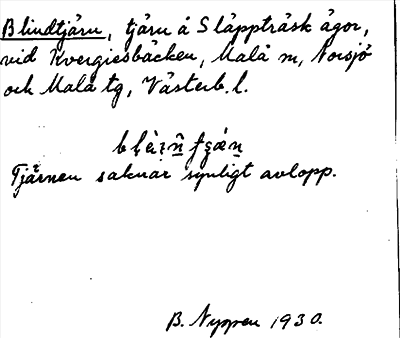 Blindtjärn, tjärn å Släppträsk ägor,
vid Kvergiesbäcken, Malå sn, Norsjö
och Malå tg, Västerb. l.
Tjärnen saknar synligt avlopp.
B. Nyppen 1930.